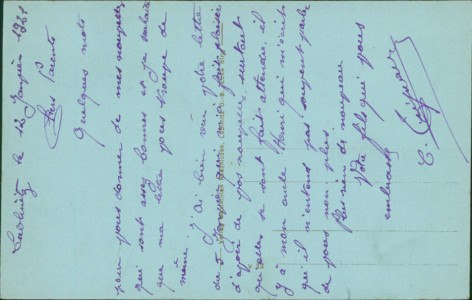 le 12 Janvier 1921
Chers Parents
Quelques mots
pour vous donner de mes nouvelles
qui sont assez bonnes et je souhaite
que ma lettre vous trouve de
même. J'ai bien reçu votre lettre
du 5 qui m'a fait plaisir
d'avoir de vos nouvelles surtout
qu'elles se sont fait attendre, il
y a mon oncle Henri qui m'écrit
qu'il n'entend pas souvent parler
de vous non plus.
Plus rien de nouveau
Votre fils qui vous
embrasse
C.